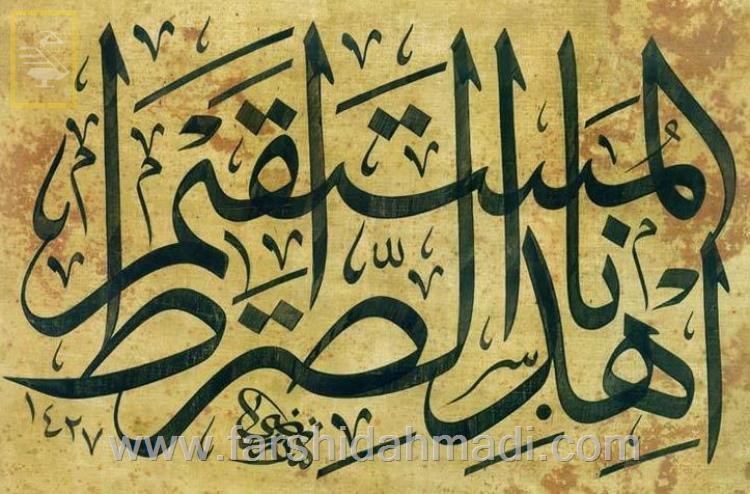 اهدنا الصراط
المستقیم
١٤٢٧
www.farshidahmadi.com